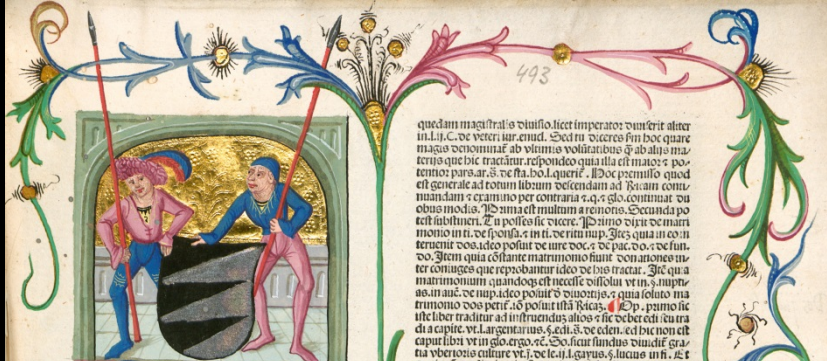 493
quedam magistralis diuisio. licet imperator diuiserit aliter
in.l.ij.C.de veteri iur.enucl. Sed tu diceres ꝑm hoc quare
magis denominať ab vltimis volūtatibus ꝙ ab alijs ma⸗
terijs que hic tractātur. respondeo quia illa est maior ⁊ po⸗
tentior pars. ar. s̄. de sta. ho. l. querit̄. Hoc premisso quod
est generale ad totum librum descendam ad Bricam conti⸗
nuandam ⁊ examino per contraria ⁊.q. ⁊ glo. continuat du
obus modis. Prima est multum a remotis. Secunda po
test substineri. Tu posses sic dicere. Primo dixit de matri
monio in ti. de sponsa. ⁊ in ti. de ritu nup. Itez quia in eo in
teruenit dos. ideo posuit de iure doc. ⁊ de pac. do. ⁊ de fun⸗
do. Item quia cōstante matrimonio fiunt donationes in⸗
ter coniuges que reprobantur ideo de his tractat. Itē quia
matrimonium quandoqz est necesse dissolui vt in. §. nupti⸗
as. in auc̄. de nup. ideo posuit đ diuortijs. ⁊ quia soluto ma
trimonio dos petit̄. iō posuit istā Bricaz. Op. primo sic
iste liber traditur ad instruenduz alios ⁊ sic debet edi seu tra
di a capite. vt. l. argentarius. §. edi. s̄. de eden. sed hic non est
caput libri vt in glo. ergo. ⁊c̄. So. sicut fundus diuidit̄ gra⸗
tia vberioris culture vt. j. de le. ij. l. gayus. §. lucius in fi. Et